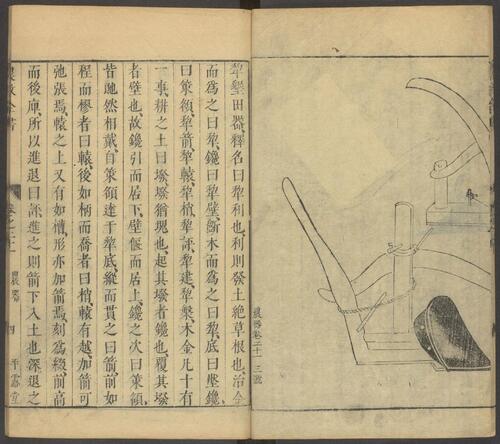 農器卷二十一 三
犂墾田器釋名曰犂利也利則發土絕草根也冶金
而為之曰犂鑱曰犂壁斲木而為之曰犂底曰壓鑱
曰策額犂箭犂轅犂梢犂評犂建犂槃木金凡十有
一事耕之土曰墢墢猶塊也起其墢者鑱也覆其墢
者壁也故鑱引而居下壁偃而居上鑱之次曰策額
皆貤然相戴自策額達于犂底縱而貫之曰箭前如
程而樛者曰轅後如柄而喬者曰梢轅有越加箭可
弛張焉轅之上又有如槽形亦加箭焉刻為級前高
而後庳所以進退曰評進之則箭下入土也深退之
農政全書 卷之二十一 農器 四 平露堂